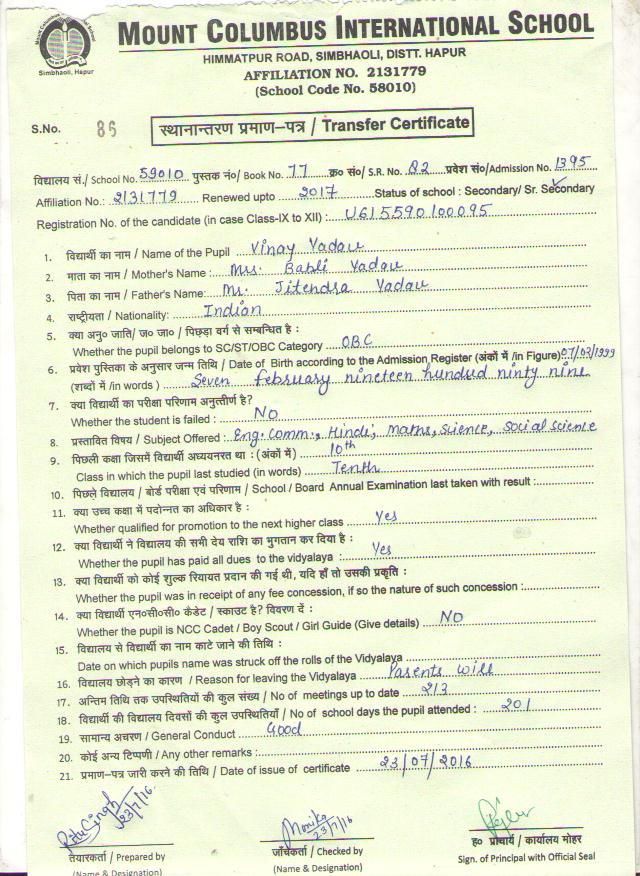 Mount Columbus International School
Simbhaoli, Hapur
HIMMATPUR ROAD, SIMBHAOLI, DISTT. HAPUR
AFFILIATION NO. 2131779
(School Code No. 58010)
S.No. 86 स्थानान्तरण प्रमाण-पत्र / Transfer Certificate
विद्यालय सं./ School No. 59010 पुस्तक नं०/ Book No. 77 क्र० सं०/ S.R. No. 82 प्रवेश सं०/Admission No. 1395
Affiliation No.: 2131779 Renewed upto 2017 Status of school : Secondary/ Sr. Secondary
Registration No. of the candidate (in case Class-IX to XII) : U615590100095
1. विद्यार्थी का नाम / Name of the Pupil Vinay Yadav
2. माता का नाम / Mother's Name : Mrs. Babli Yadav
3. पिता का नाम / Father's Name: Mr. Jitendra Yadav
4. राष्ट्रीयता / Nationality: Indian
5. क्या अनु० जाति/ ज० जा० / पिछड़ा वर्ग से सम्बन्धित है :
Whether the pupil belongs to SC/ST/OBC Category OBC
6. प्रवेश पुस्तिका के अनुसार जन्म तिथि / Date of Birth according to the Admission Register (अंकों में /in Figure) 07/02/1999
(शब्दों में /in words) Seven february nineteen hundred ninty nine
7. क्या विद्यार्थी का परीक्षा परिणाम अनुत्तीर्ण है?
Whether the student is failed : NO
8. प्रस्तावित विषय / Subject Offered : Eng. Comm., Hindi, maths, Science, Social science
9. पिछली कक्षा जिसमें विद्यार्थी अध्ययनरत था : (अंकों में ) 10th
Class in which the pupil last studied (in words) Tenth
10. पिछले विद्यालय / बोर्ड परीक्षा एवं परिणाम / School / Board Annual Examination last taken with result :
11. क्या उच्च कक्षा में पदोन्नत का अधिकार है :
Whether qualified for promotion to the next higher class Yes
12. क्या विद्यार्थी ने विद्यालय की सभी देय राशि का भुगतान कर दिया है :
Whether the pupil has paid all dues to the vidyalaya : Yes
13. क्या विद्यार्थी को कोई शुल्क रियायत प्रदान की गई थी, यदि हाँ तो उसकी प्रकृति :
Whether the pupil was in receipt of any fee concession, if so the nature of such concession :
14. क्या विद्यार्थी एन०सी०सी० कैडेट / स्काउट है? विवरण दें :
Whether the pupil is NCC Cadet / Boy Scout / Girl Guide (Give details) NO
15. विद्यालय से विद्यार्थी का नाम काटे जाने की तिथि :
Date on which pupils name was struck off the rolls of the Vidyalaya
16. विद्यालय छोड़ने का कारण / Reason for leaving the Vidyalaya Parents will
17. अन्तिम तिथि तक उपस्थितियों की कुल संख्या / No of meetings up to date 213
18. विद्यार्थी की विद्यालय दिवसों की कुल उपस्थितियाँ / No of school days the pupil attended : 201
19. सामान्य अचरण / General Conduct Good
20. कोई अन्य टिप्पणी / Any other remarks :
21. प्रमाण-पत्र जारी करने की तिथि / Date of issue of certificate 23/07/2016
Ritu Singh 23/7/16 Monika 23/7/16
तैयारकर्ता / Prepared by जाँचकर्ता / Checked by ह० प्राचार्य / कार्यालय मोहर
(Name & Designation) (Name & Designation) Sign. of Principal with Official Seal